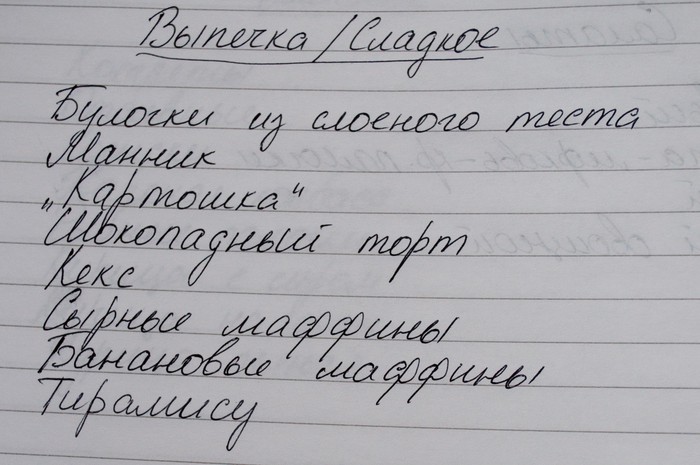 Выпечка/Сладкое
Булочки из слоеного теста
Манник
„Картошка“
Шоколадный торт
Кекс
Сырные маффины
Банановые маффины
Тирамису